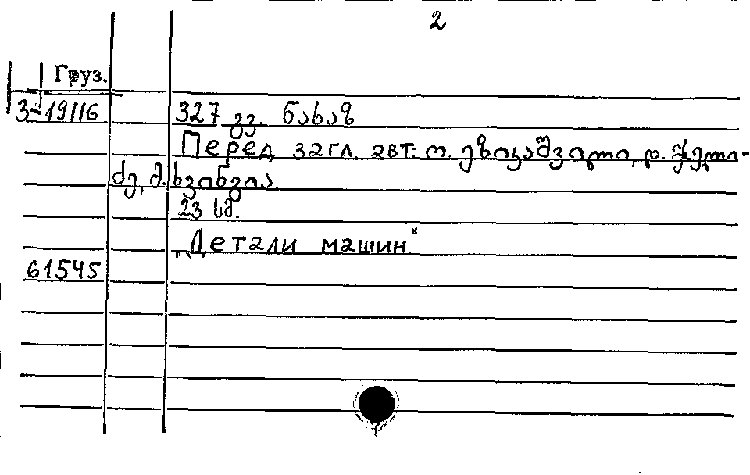 2
Груз.
3-19116 327 გვ. ნახაზ
Перед загл. авт: ო. ეზიკაშვილი, რ. ჭელი-
ძე, მ. ხვინგია
23 სმ.
„Детали машин"
61545